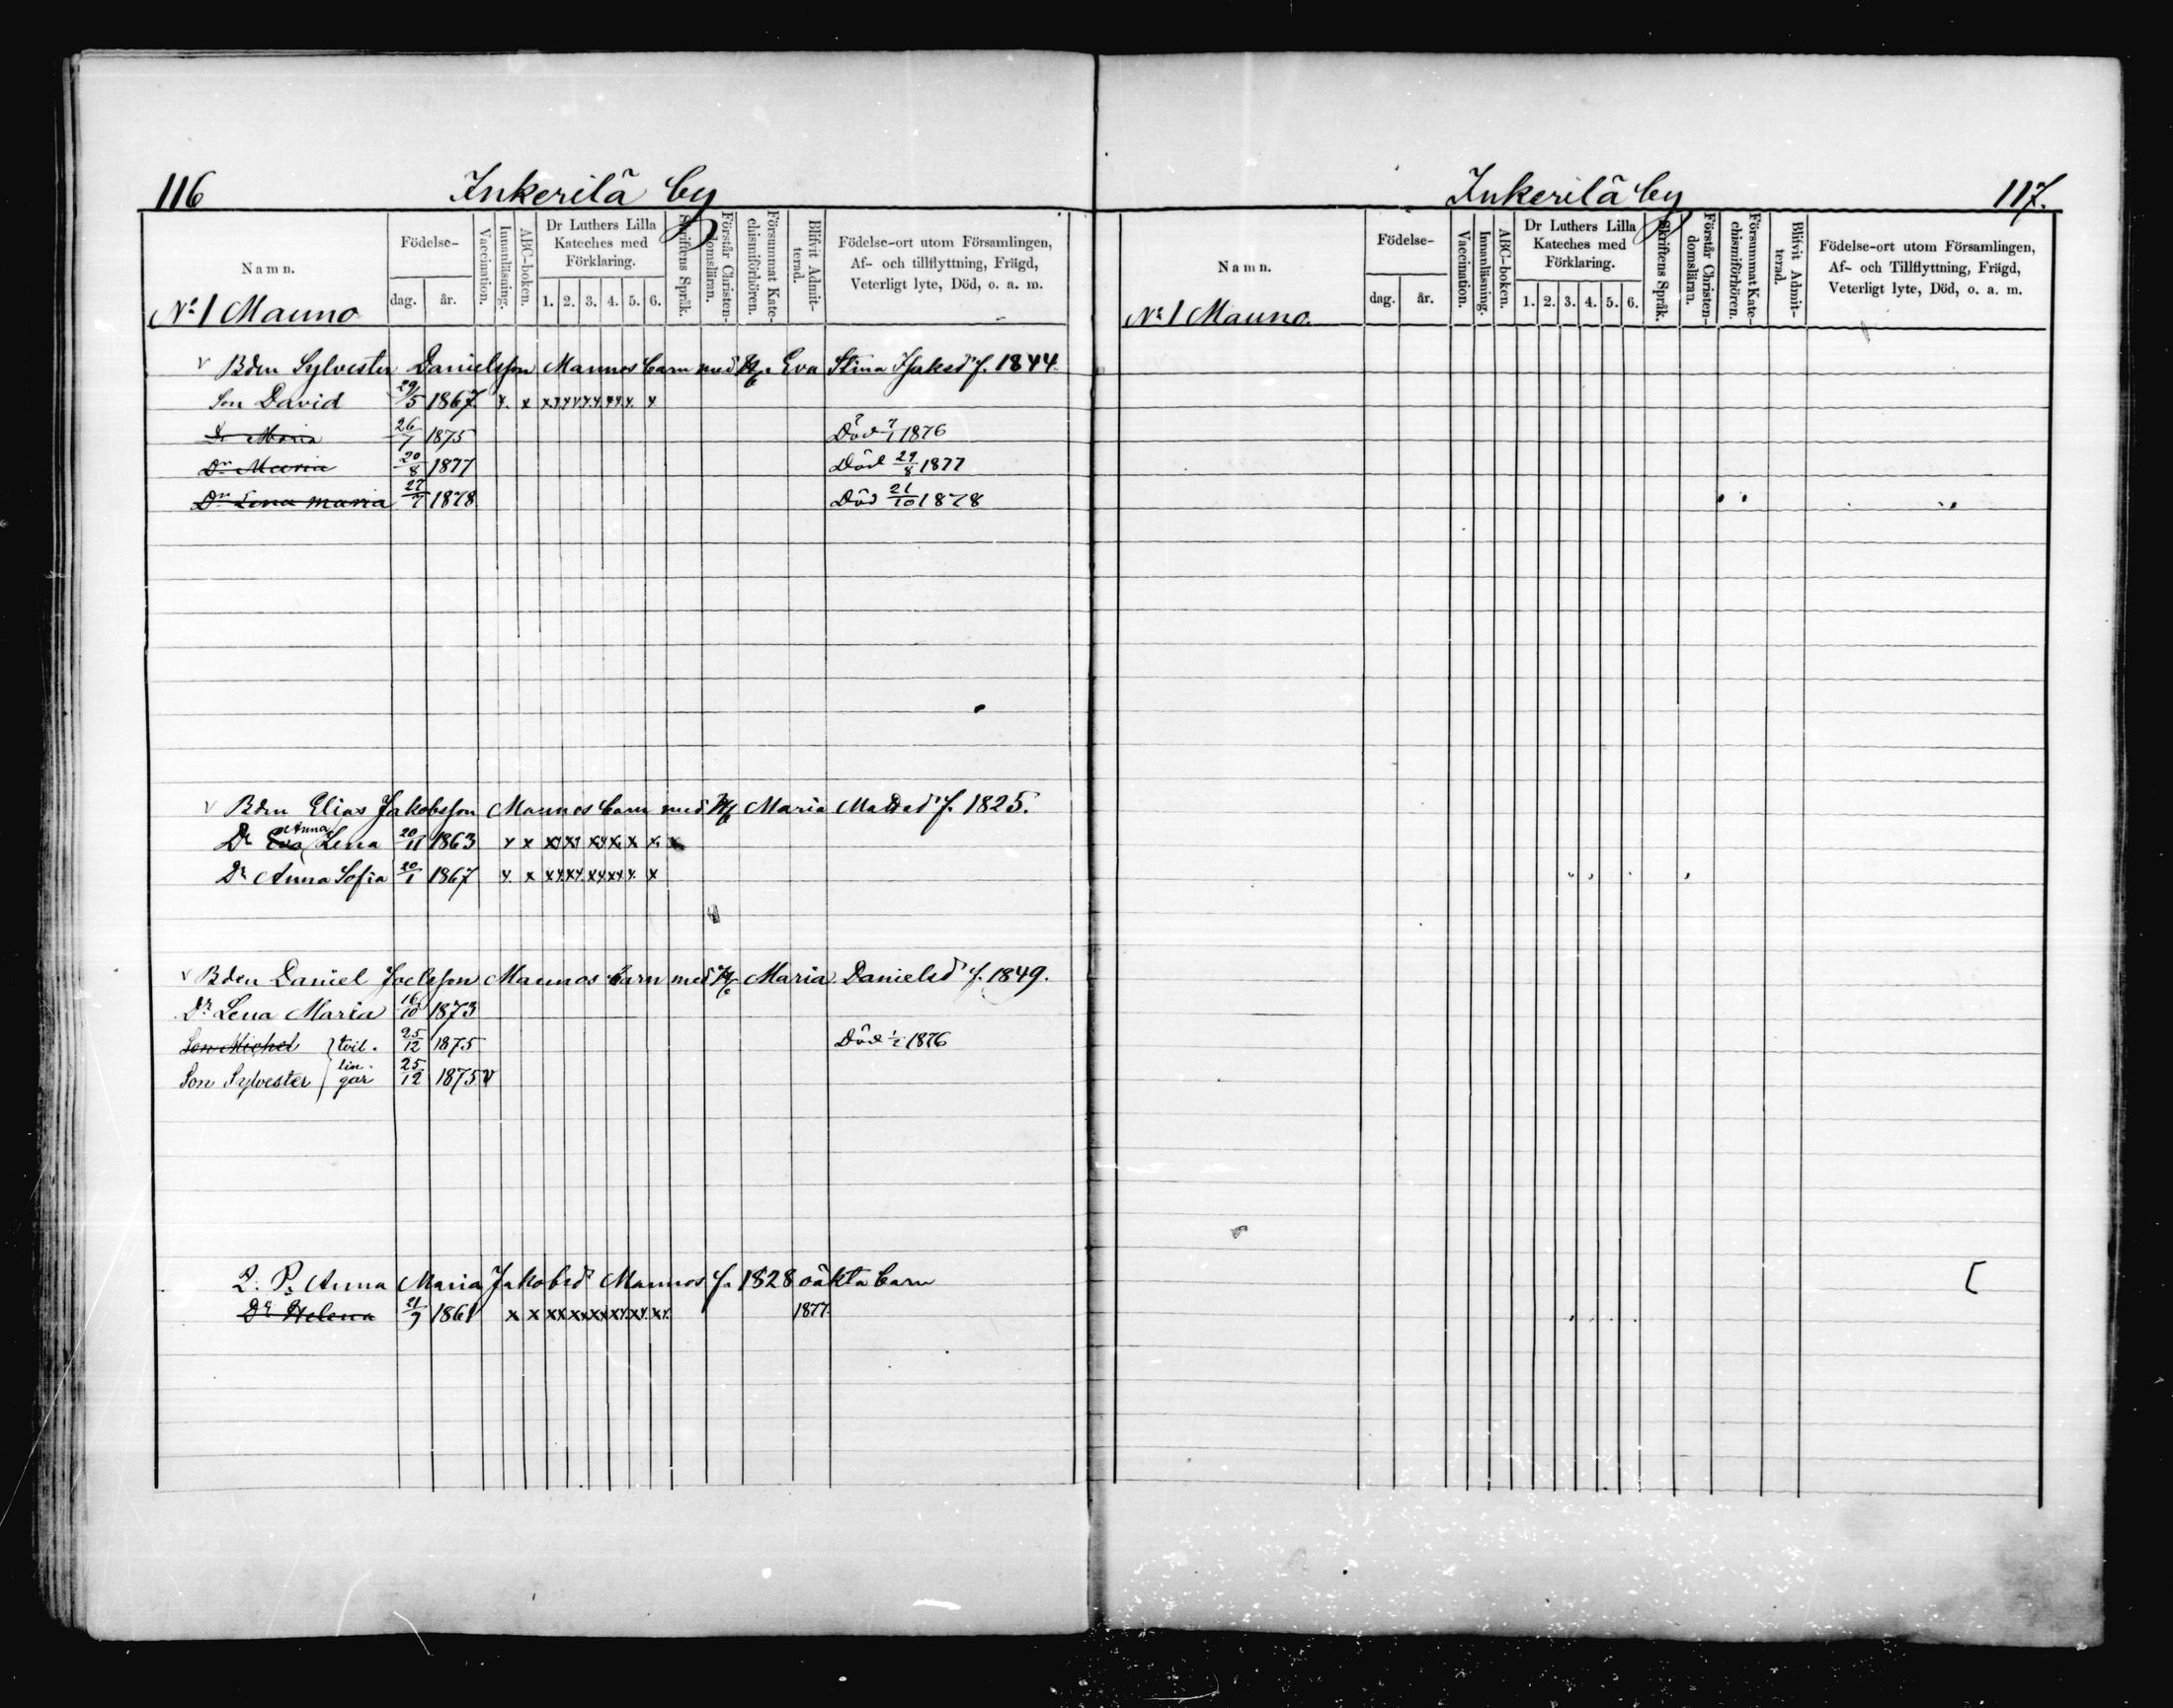 116 Inkerilä by
Namn. Födelse- dag. år. Vaccination. Innanläsning. ABC-boken. Dr Luthers Lilla Kateches med Förklaring. 1. 2. 3. 4. 5. 6. Skriftens Språk. Förstår Christendomsläran. Försummat Katechismiförhören. Blifvit Admitterad. Födelse-ort utom Församlingen, Af- och tillflyttning, Frägd, Veterligt lyte, Död, o. a. m.
No 1 Mauno
v Bden Sylvester Danielsson Maunos barn med H. Eva Stina Isaksdr f. 1844.
Son David 29/5 1867 x x x x x x x x x x
Dr Maria 26/7 1875 Död 7/1 1876
Dr Maria 20/8 1877 Död 29/8 1877
Dr Lena Maria 27/7 1878 Död 21/10 1878
v Bden Elias Jakobsson Maunos barn med H Maria Mattsdr f. 1825.
Dr Eva Anna Lena 20/11 1863 x x x x x x x x x x
Dr Anna Sofia 20/1 1867 x x x x x x x x x
v Bden Daniel Joelsson Maunos barn med H. Maria Danielsdr f. 1849.
Dr Lena Maria 16/10 1873
Son Michel } tvil- 25/12 1875 Död 1/1 1876
Son Sylvester } lin-gar 25/12 1875 v
Q. P. Anna Maria Jakobsdr Maunos f. 1828 oäkta barn
Dr Helena 21/9 1861 x x xx xx xx xx xx xx 1877
Inkerilä by 117.
Namn. Födelse- dag. år. Vaccination. Innanläsning. ABC-boken. Dr Luthers Lilla Kateches med Förklaring. 1. 2. 3. 4. 5. 6. Skriftens Språk. Förstår Christendomsläran. Försummat Katechismiförhören. Blifvit Admitterad. Födelse-ort utom Församlingen, Af- och Tillflyttning, Frägd, Veterligt lyte, Död, o. a. m.
No 1 Mauno.